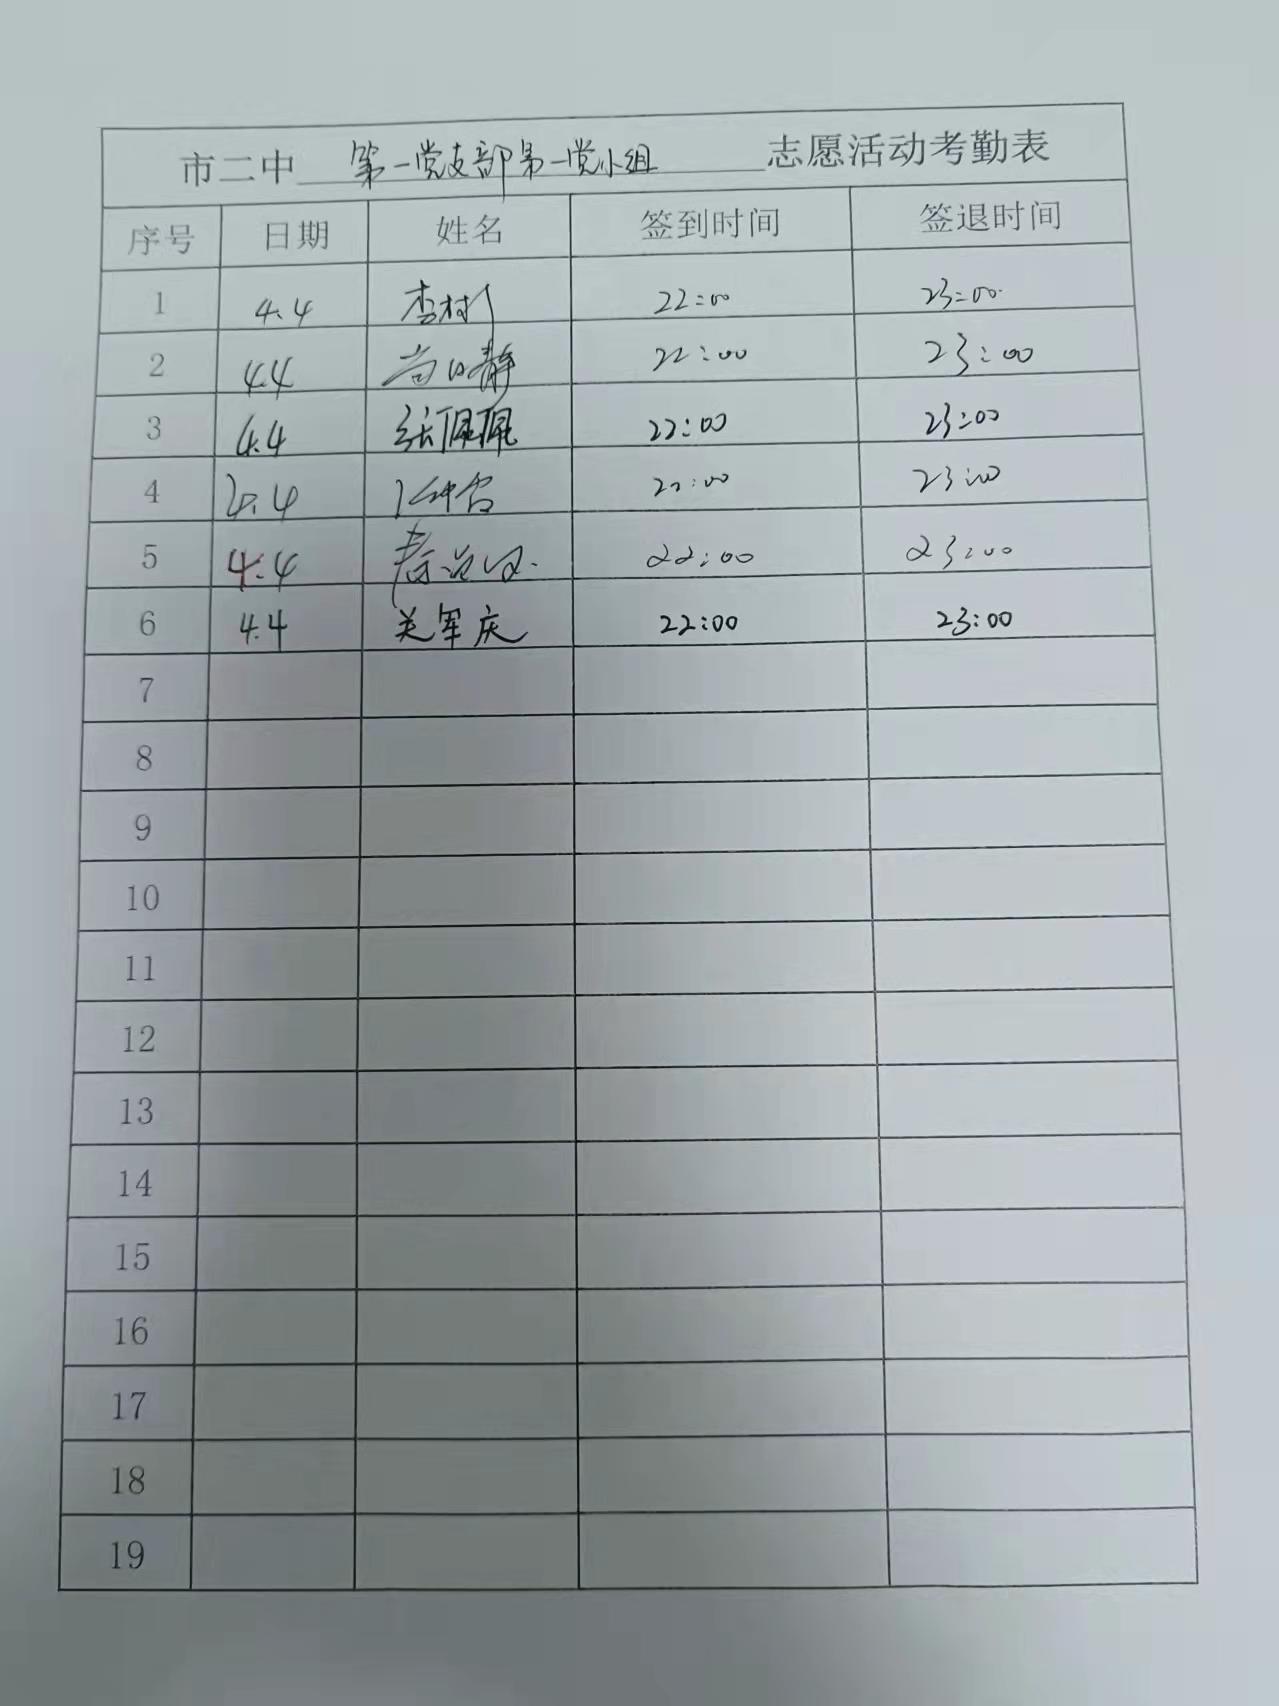 市二中 第一党支部第一党小组 志愿活动考勤表
序号 日期 姓名 签到时间 签退时间
1 4.4 李树 22:00 23:00
2 4.4 静 22:00 23:00
3 4.4 张佩佩 22:00 23:00
4 4.4 22:00 23:00
5 4.4 22:00 23:00
6 4.4 关军庆 22:00 23:00
7
8
9
10
11
12
13
14
15
16
17
18
19